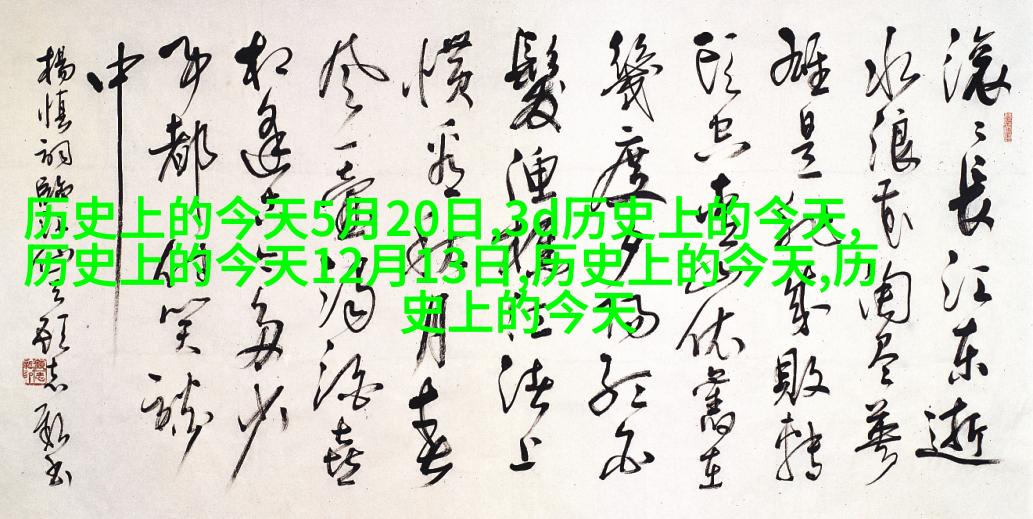 滚〻長江东逝
水浪花淘尽英
雄是非成敗轉
头空青山依舊在
幾度夕陽红白
髮漁樵江渚上
惯看秋月春
风一壺濁酒喜
相逢古今多少
事都付笑談
中
楊慎詞臨江仙
历史上的今天5月20日,3d历史上的今天,
历史上的今天12月13日,历史上的今天,历
史上的今天